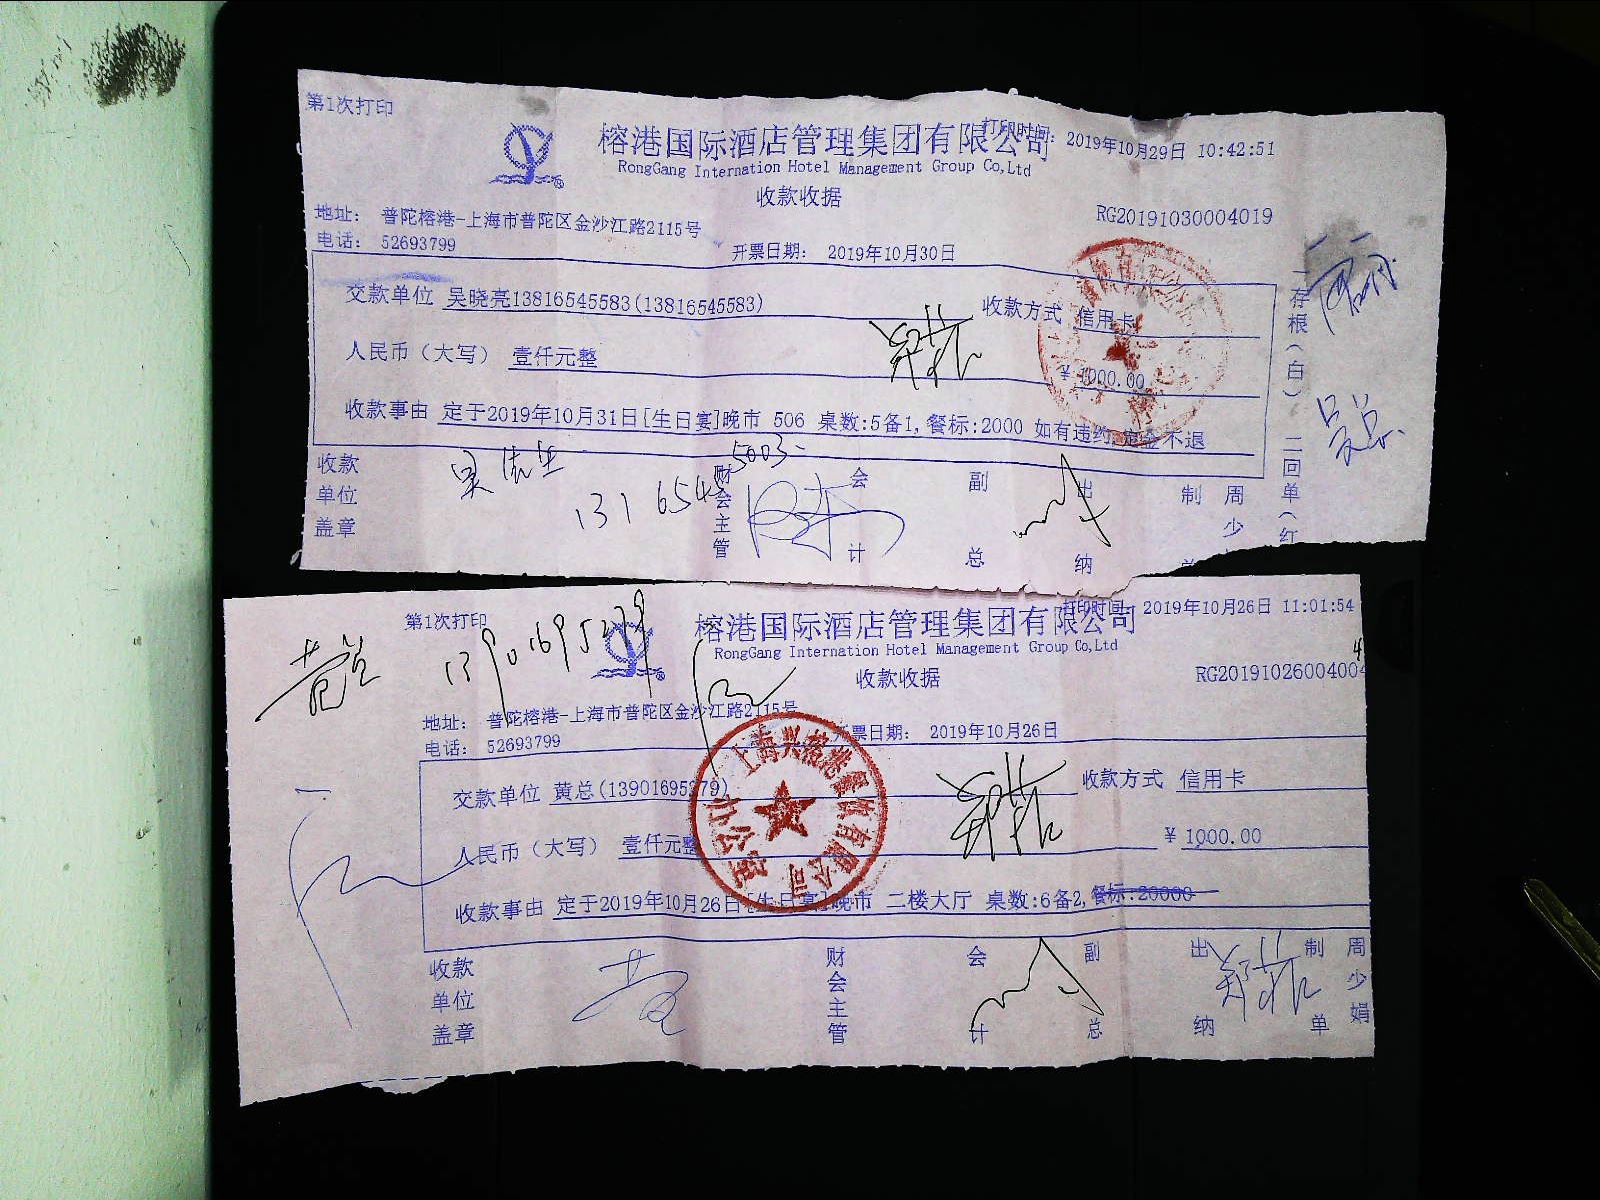 第1次打印
榕港国际酒店管理集团有限公司
打印时间: 2019年10月29日 10:42:51
RongGang Internation Hotel Management Group Co,Ltd
收款收据
地址: 普陀榕港-上海市普陀区金沙江路2115号
RG20191030004019
电话: 52693799
开票日期: 2019年10月30日
交款单位 吴晓亮13816545583(13816545583)
收款方式 信用卡
人民币（大写） 壹仟元整
¥ 1000.00
收款事由 定于2019年10月31日[生日宴]晚市 506 桌数:5备1,餐标:2000 如有违约,定金不退
一存根(白) 二回单(红
吴总
5003-
吴先生
收款单位盖章
财会主管
会计
副总
出纳
制
周少
第1次打印
榕港国际酒店管理集团有限公司
打印时间: 2019年10月26日 11:01:54
黄总 13901695279
RongGang Internation Hotel Management Group Co,Ltd
收款收据
RG2019102600400
地址: 普陀榕港-上海市普陀区金沙江路2115号
电话: 52693799
开票日期: 2019年10月26日
交款单位 黄总(13901695279)
收款方式 信用卡
人民币（大写） 壹仟元整
¥ 1000.00
收款事由 定于2019年10月26日[生日宴]晚市 二楼大厅 桌数:6备2,餐标:20000
收款单位盖章
财会主管
会计
副总
出纳
制单
周少娟